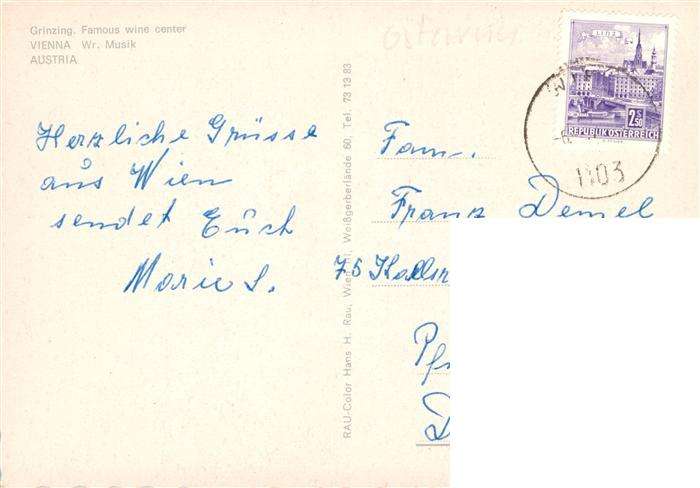 Grinzing. Famous wine center
VIENNA Wr. Musik
AUSTRIA
Herzliche Grüsse
aus Wien
sendet Euch
Marie S.
RAU-Color Hans H. Rau, Wien III, Weißgerberlände 60, Tel. 73 13 83
LINZ
2.50
REPUBLIK ÖSTERREICH
1103
Fam.
Franz Demel
75
Pf
D